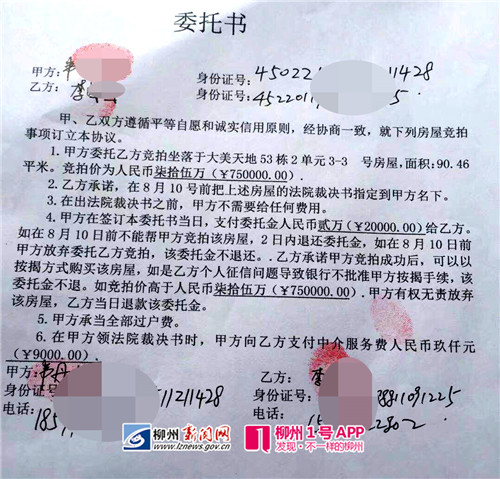 委托书
甲方:
身份证号:45022 11428
乙方:李
身份证号:452201 5.
甲、乙双方遵循平等自愿和诚实信用原则，经协商一致，就下列房屋竞拍
事项订立本协议。
1.甲方委托乙方竞拍坐落于大美天地53栋2单元3-3 号房屋，面积:90.46
平米。竞拍价为人民币柒拾伍万（¥750000.00）.
2.乙方承诺，在8月10号前把上述房屋的法院裁决书指定到甲方名下。
3.在出法院裁决书之前，甲方不需要给任何费用。
4.甲方在签订本委托书当日，支付委托金人民币贰万（¥20000.00）给乙方。
如在8月10日前不能帮甲方竞拍该房屋，2日内退还委托金，如在8月10日前
甲方放弃委托乙方竞拍，该委托金不退还。.乙方承诺甲方竞拍成功后，可以以
按揭方式购买该房屋，如是乙方个人征信问题导致银行不批准甲方按揭手续，该
委托金不退。如竞拍价高于人民币柒拾伍万（¥750000.00）.甲方有权无责放弃
该房屋，乙方当日退款该委托金。
5.甲方承当全部过户费。
6.在甲方领法院裁决书时，甲方向乙方支付中介服务费人民币玖仟元
（¥9000.00）.
甲方:韦丹
乙方:李
身份证号: 11211428
身份证号: 8811091225
电话:185
电话:15 22802
柳州新闻网
www.lznews.gov.cn
柳州1号APP
发现·不一样的柳州